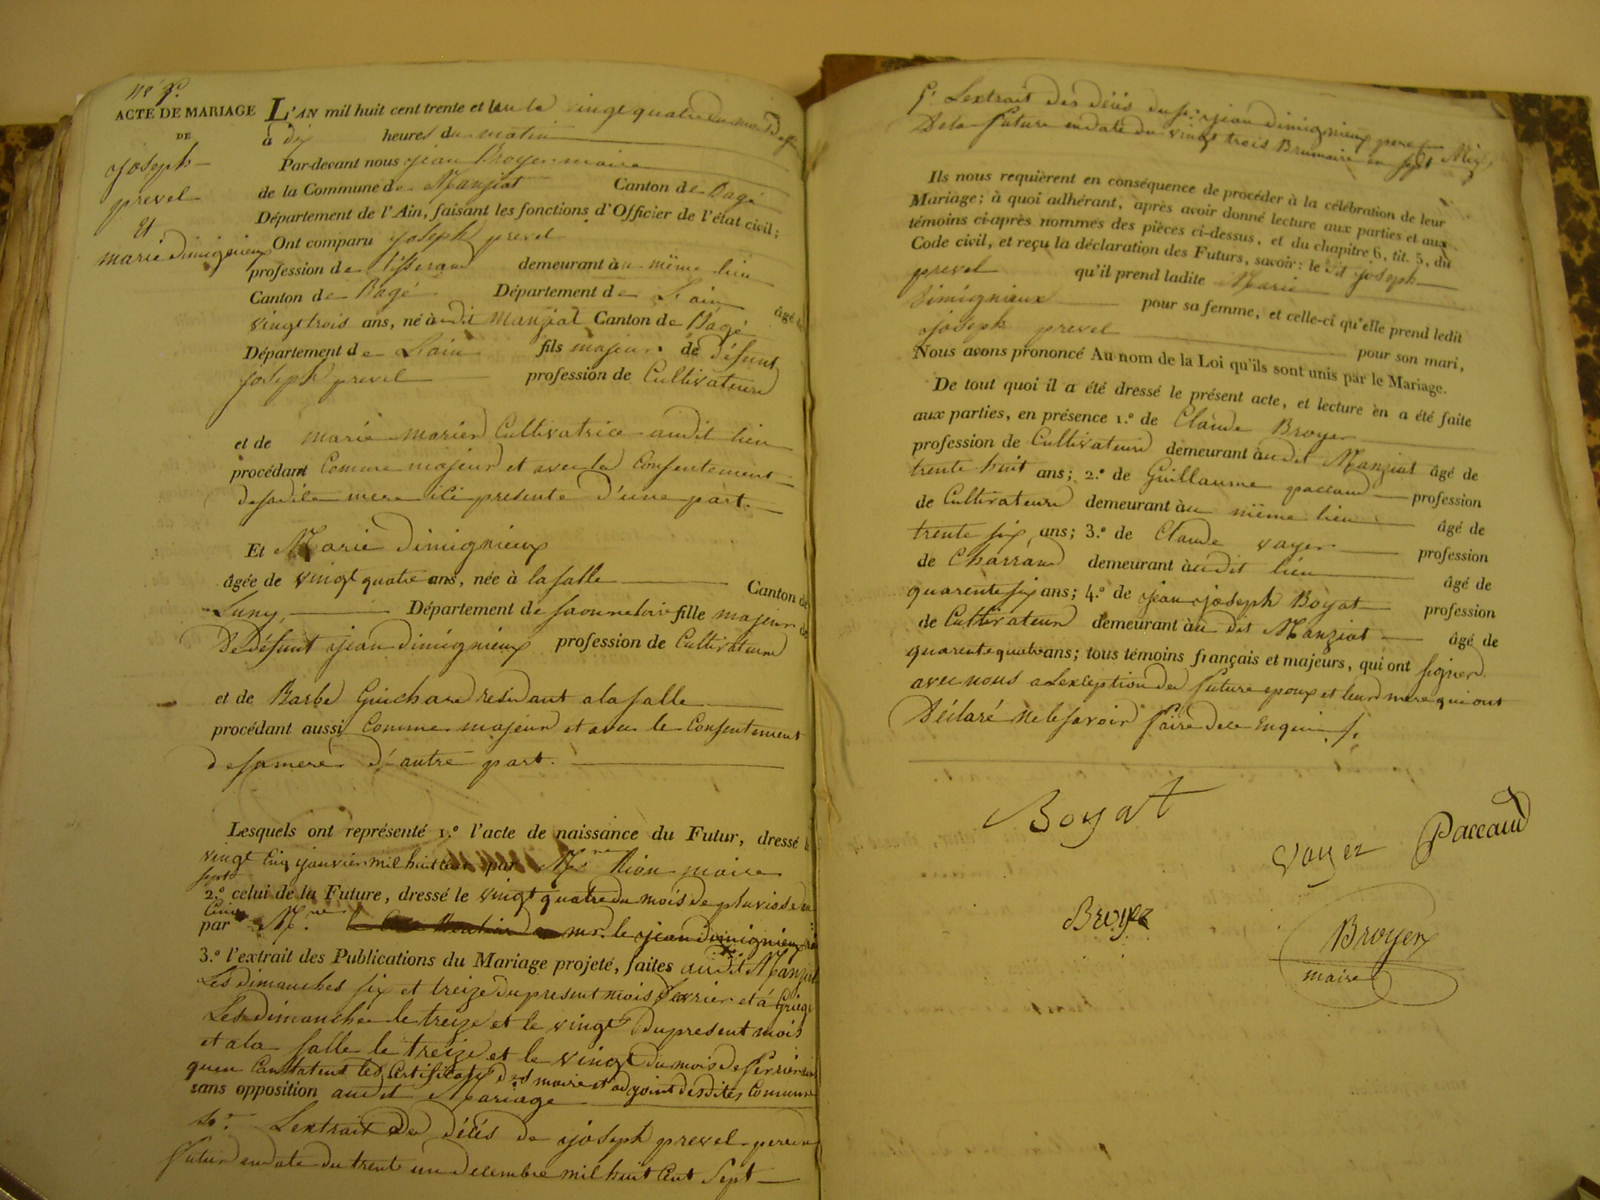 ACTE DE MARIAGE
DE
joseph
prevel
Et
marie dimignieux
L'AN mil huit cent trente et le vingt quatre du mois de
à dix heures du matin
Par-devant nous jean Broyer maire
de la Commune de Manziat Canton de Bagé
Département de l'Ain, faisant les fonctions d'Officier de l'état civil;
Ont comparu joseph prevel
profession de tisserand demeurant au même lieu
Canton de Bagé Département de L'ain âgé de
vingt trois ans, né audit manziat Canton de Bagé
Département de L'ain fils majeur de défunt
joseph prevel profession de Cultivateur
et de marie morier Cultivatrice audit lieu
procédant Comme majeur et avec le Consentement
de sadite mere ici presente d'une part.
Et Marie dimignieux
âgée de vingt quatre ans, née à la salle Canton de
Luny, Département de saone et loire fille majeure
De Défunt jean dimignieux profession de Cultivateur
et de Barbe Guichard residant a la salle
procédant aussi Comme majeur et avec le Consentement
de sa mere d'autre part.
Lesquels ont représenté 1.º l'acte de naissance du Futur, dressé le
vingt janvier mil huit cent sept par Mr maire
2.º celui de la Future, dressé le vingt quatre du mois de pluviose an
Cinq par Mr. le jean dimignieux
3.º l'extrait des Publications du Mariage projeté, faites audit Manziat
Les dimanches six et treize du present mois fevrier et à Griege
Les dimanche le treize et le vingt du present mois
et a la salle le treize et le vingt du mois de fevrier
quen Constatent les Certificats des maire et adjoint desdites Commune
sans opposition audit Mariage
4º. L'extrait de décés de joseph prevel pere du
futur en date du trente un decembre mil huit Cent sept
5º L'extrait des décés du sr jean dimignieux pere
De la future en date du vingt trois Brumaire an sept
Ils nous requièrent en conséquence de procéder à la célébration de leur
Mariage; à quoi adhérant, après avoir donné lecture aux parties et aux
témoins ci-après nommés des pièces ci-dessus, et du chapitre 6, tit. 5, du
Code civil, et reçu la déclaration des Futurs, savoir: le dit joseph
prevel qu'il prend ladite Marie
Dimignieux pour sa femme, et celle-ci qu'elle prend ledit
joseph prevel pour son mari,
Nous avons prononcé Au nom de la Loi qu'ils sont unis par le Mariage.
De tout quoi il a été dressé le présent acte, et lecture en a été faite
aux parties, en présence 1.º de Claude Broyer
profession de Cultivateur demeurant audit Manziat âgé de
trente huit ans; 2.º de Guillaume paccaud profession
de Cultivateur demeurant au même lieu âgé de
trente six ans; 3.º de Claude voyer profession
de Charron demeurant audit lieu âgé de
quarente six ans; 4.º de jean joseph Boyat profession
de Cultivateur demeurant au dit Manziat âgé de
quarente quatre ans; tous témoins français et majeurs, qui ont signer
avec nous a L'exception des future epoux et leurs mere qui ont
Déclaré ne le savoir faire de ce Enquis
Boyat
Voyer Paccaud
Broyer
Broyer
maire